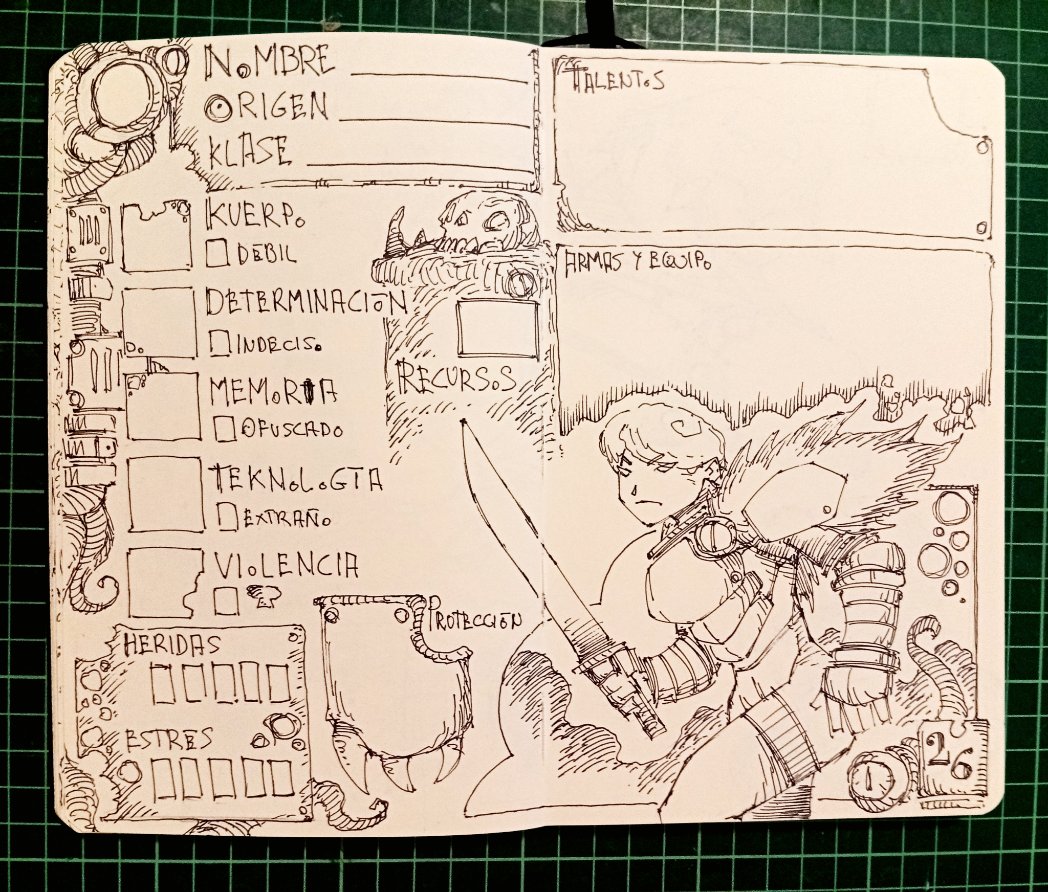 NOMBRE
ORIGEN
KLASE
KUERPO
DEBIL
DETERMINACIÓN
INDECISO
MEMORIA
OFUSCADO
TEKNOLOGIA
EXTRAÑO
VIOLENCIA
RECURSOS
HERIDAS
ESTRES
PROTECCIÓN
TALENTOS
ARMAS Y EQUIPO
1
26